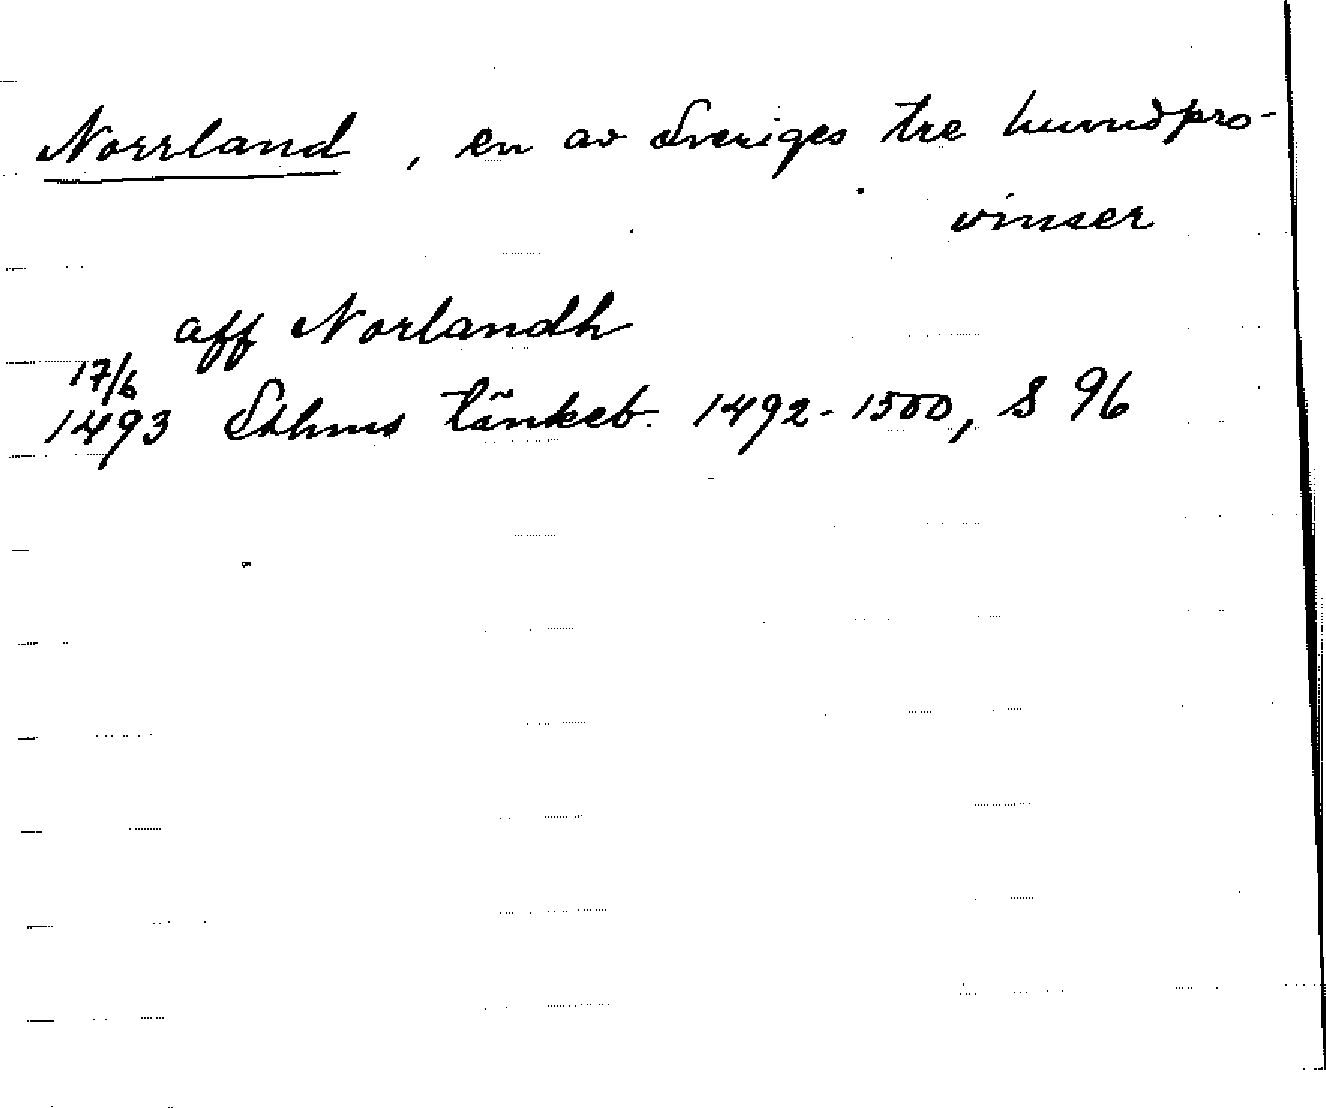 Norrland, en av Sveriges tre huvudpro-
vinser
aff Norlandh
17/6
1493 Sthms tänkeb. 1492-1500, S 96